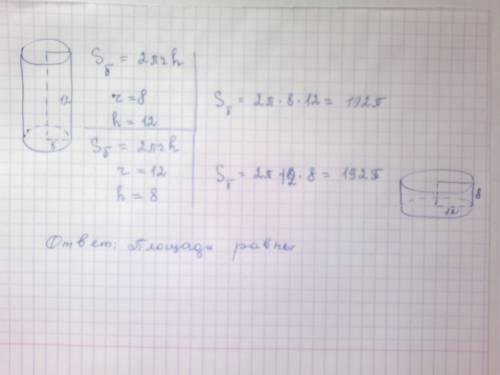 12
8
S_б = 2πrh
r = 8
h = 12
S_б = 2π · 8 · 12 = 192π
S_б = 2πrh
r = 12
h = 8
S_б = 2π · 12 · 8 = 192π
8
12
Ответ: Площади равны